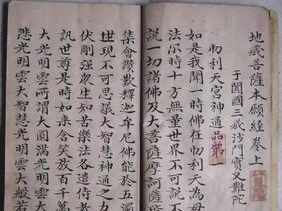 地藏菩薩本願經卷上
于闐國三藏法門實叉難陀
忉利天宮神通品第一
如是我聞一時佛在忉利天為母
法尔時十方無量世界不可說不
說一切諸佛及大菩薩摩訶薩
集會讚歎釋迦牟尼佛能於五濁
世現不可思議大智慧神通之力
伏剛強衆生知苦樂法各遣侍者
訊世尊是時如來含笑放百千萬
大光明雲所謂大圓滿光明雲
悲光明雲大智慧光明雲大般若